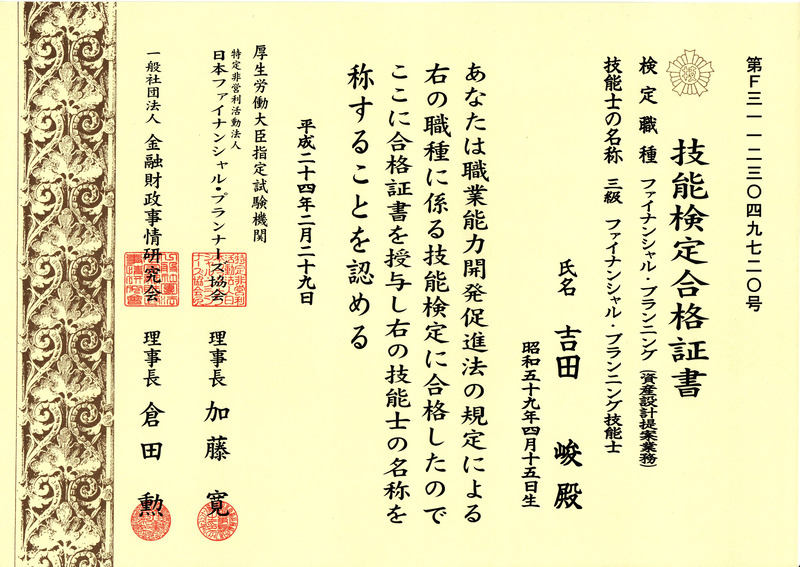 第F三一一二三〇四九七二〇号
技能検定合格証書
検定職種 ファイナンシャル・プランニング（資産設計提案業務）
技能士の名称 三級 ファイナンシャル・プランニング技能士
氏名 吉田 峻 殿
昭和五十九年四月十五日生
あなたは職業能力開発促進法の規定による
右の職種に係る技能検定に合格したので
ここに合格証書を授与し右の技能士の名称を
称することを認める
平成二十四年二月二十九日
厚生労働大臣指定試験機関
特定非営利活動法人
日本ファイナンシャル・プランナーズ協会 理事長 加藤 寛
一般社団法人 金融財政事情研究会 理事長 倉田 勲